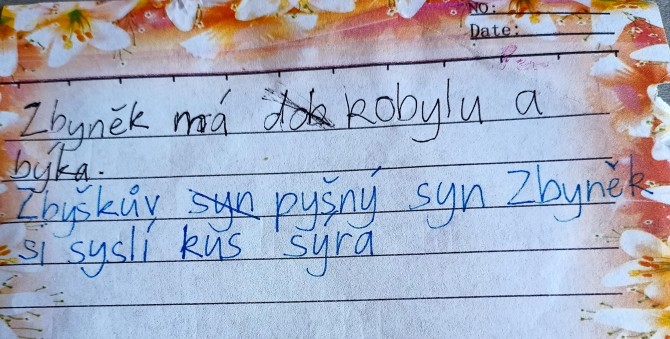 NO:
Date:
Zbyněk má kobylu a
býka.
Zbyškův syn pyšný syn Zbyněk
si syslí kus sýra